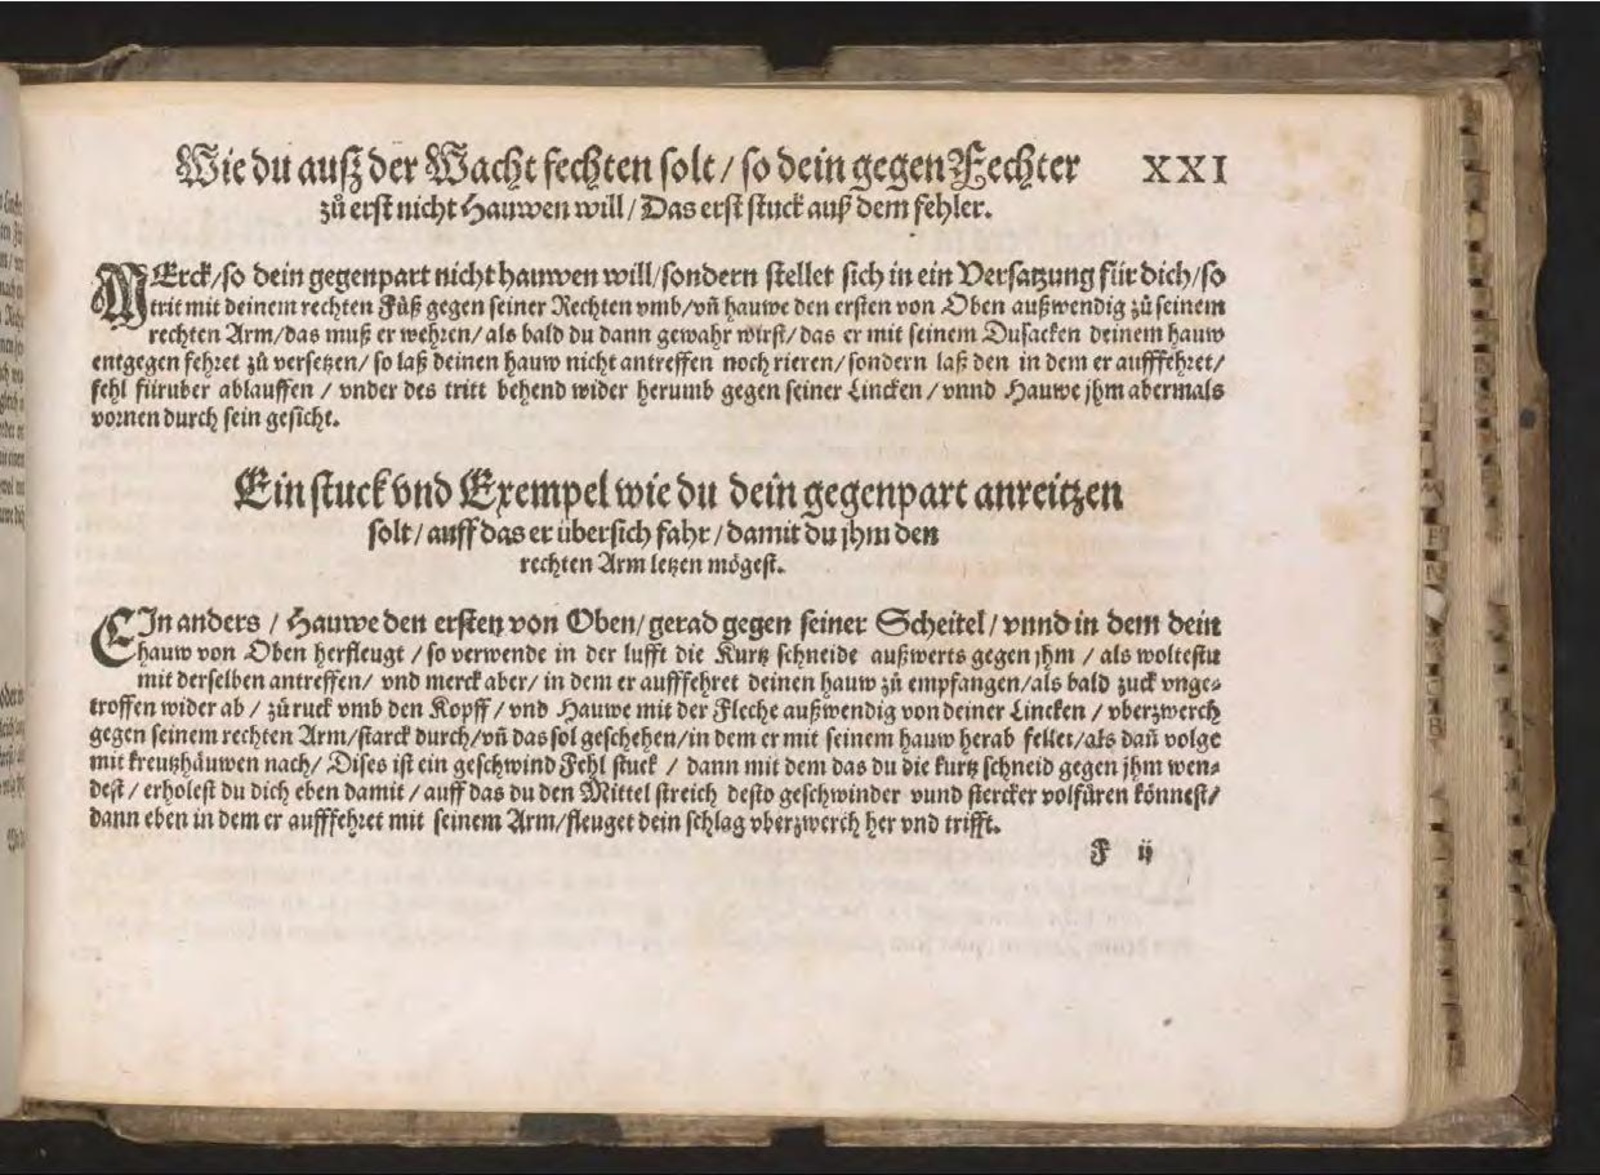 Wie du auß der Wacht fechten solt / so dein gegen Fechter XXI
zů erst nicht Hauwen will / Das erst stuck auß dem fehler.
MErck / so dein gegenpart nicht hauwen will / sondern stellet sich in ein Versatzung für dich / so
trit mit deinem rechten Fůß gegen seiner Rechten vmb / vñ hauwe den ersten von Oben außwendig zů seinem
rechten Arm / das muß er wehren / als bald du dann gewahr wirst / das er mit seinem Dusacken deinem hauw
entgegen fehret zů versetzen / so laß deinen hauw nicht antreffen noch rieren / sondern laß den in dem er aufffehret /
fehl fürüber ablauffen / vnder des tritt behend wider herumb gegen seiner Lincken / vnnd Hauwe jhm abermals
vornen durch sein gesicht.
Ein stuck vnd Exempel wie du dein gegenpart anreitzen
solt / auff das er übersich fahr / damit du jhm den
rechten Arm letzen mögest.
EIn anders / Hauwe den ersten von Oben / gerad gegen seiner Scheitel / vnnd in dem dein
hauw von Oben herfleugt / so verwende in der lufft die Kurtz schneide außwerts gegen jhm / als woltestu
mit derselben antreffen / vnd merck aber / in dem er aufffehret deinen hauw zů empfangen / als bald zuck vnge⸗
troffen wider ab / zů ruck vmb den Kopff / vnd Hauwe mit der Fleche außwendig von deiner Lincken / vberzwerch
gegen seinem rechten Arm / starck durch / vñ das sol geschehen / in dem er mit seinem hauw herab fellet / als dañ volge
mit kreutzhäuwen nach / Dises ist ein geschwind Fehl stuck / dann mit dem das du die kurtz schneid gegen jhm wen⸗
dest / erholest du dich eben damit / auff das du den Mittel streich desto geschwinder vund stercker volfüren könnest /
dann eben in dem er aufffehret mit seinem Arm / fleuget dein schlag vberzwerch her vnd trifft.
F ij